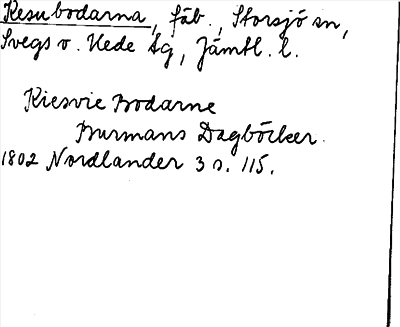 Resubodarna, fäb., Storsjö sn,
Svegs o. Hede tg, Jämtl. l.
Kiesvie Bodarne
Burmans Dagböcker.
1802 Nordlander 3 s. 115.